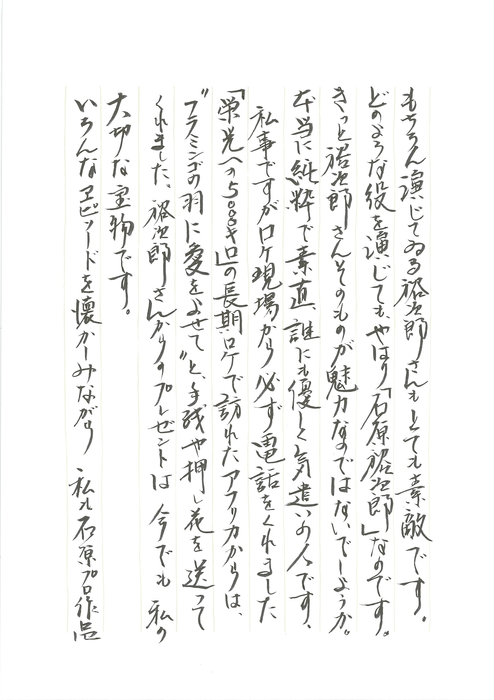 もちろん演じてゐる裕次郎さんもとても素敵です。
どのような役を演じても、やはり「石原裕次郎」なのです。
きっと裕次郎さんそのものが魅力なのではないでしょうか。
本当に純粋で素直、誰にも優しく気遣いの人です。
私事ですがロケ現場から必ず電話をくれました
「栄光への5000キロ」の長期ロケで訪れたアフリカからは、
"フラミンゴの羽に愛をよせて"と、手残や押し花を送って
くれました。裕次郎さんからのプレゼントは 今でも 私の
大切な宝物です。
いろんなエピソードを懐かしみながら 私も石原プロ作品